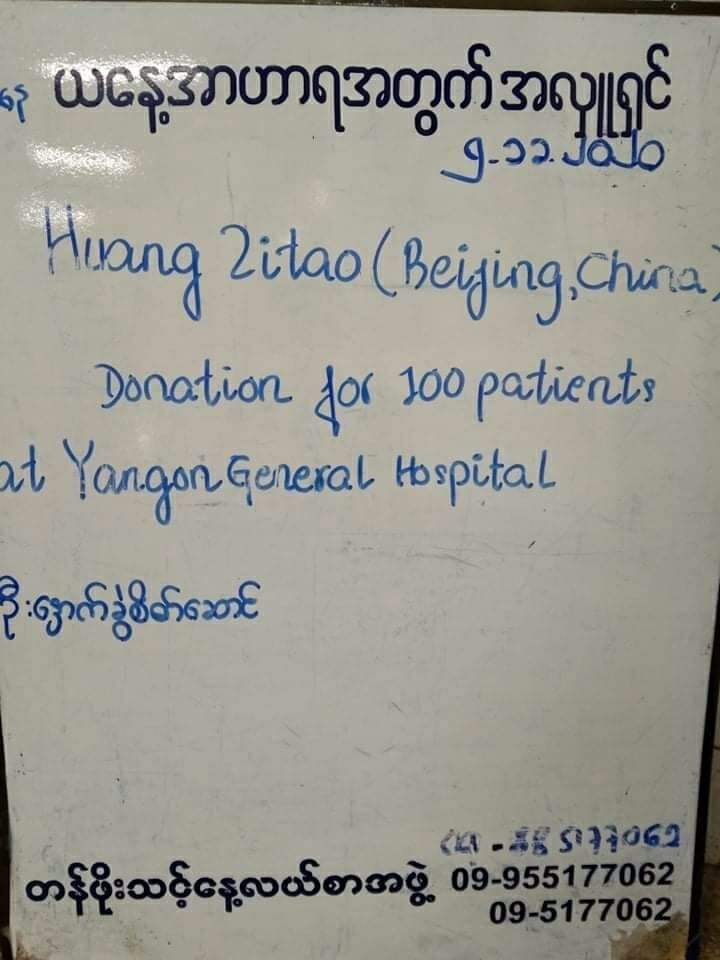 နေ့ ယနေ့အာဟာရအတွက် အလှူရှင်
၄-၁၁.၂၀၂၀
Huang Zitao (Beijing, China)
Donation for 100 patients
at Yangon General Hospital
ဦးနှောက်ခွဲစိတ်ဆောင်
5177062
တန်ဖိုးသင့်နေ့လယ်စာအဖွဲ့ 09-955177062
09-5177062